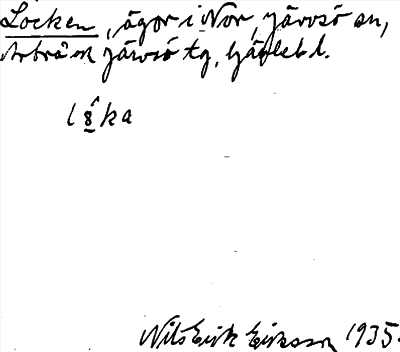 Locken, ägor i Nor, Järvsö sn,
Arbrå ok Järvsö tg, Gävleb l.
l8̂ka
Nils Erik Eriksson 1935.